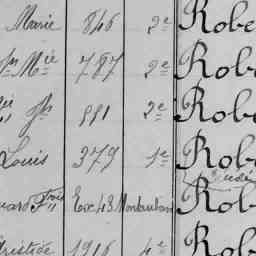 Marie 846 2e Robe
Jn Mie 787 2e Rob
Jh 991 2e Rob
Louis 379 1e Rob
Fois Exc 48 Montauban Rob
Aristide 1916 4e Rob